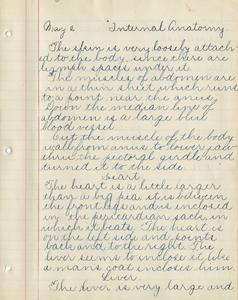 May 2 Internal Anatomy
The skin is very loosely attach-
ed to the body, since there are
lymph spaces under it.
The muscles of abdomen are
in a thin sheet which runs
to a point near the anus.
Down the median line of
abdomen is a large blue
blood vessel.
Cut the muscle of the body
wall from anus to lower jaw
thru the pectoral girdle and
turned it to the side.
Heart
The heart is a little larger
than a big pea it is between
the front legs and is enclosed
in the pericardian sack, in
which it beats. The heart is
on the left side and points
back and to the right. The
liver seems to inclose it like
a mans coat incloses him.
Liver
The liver is very large and